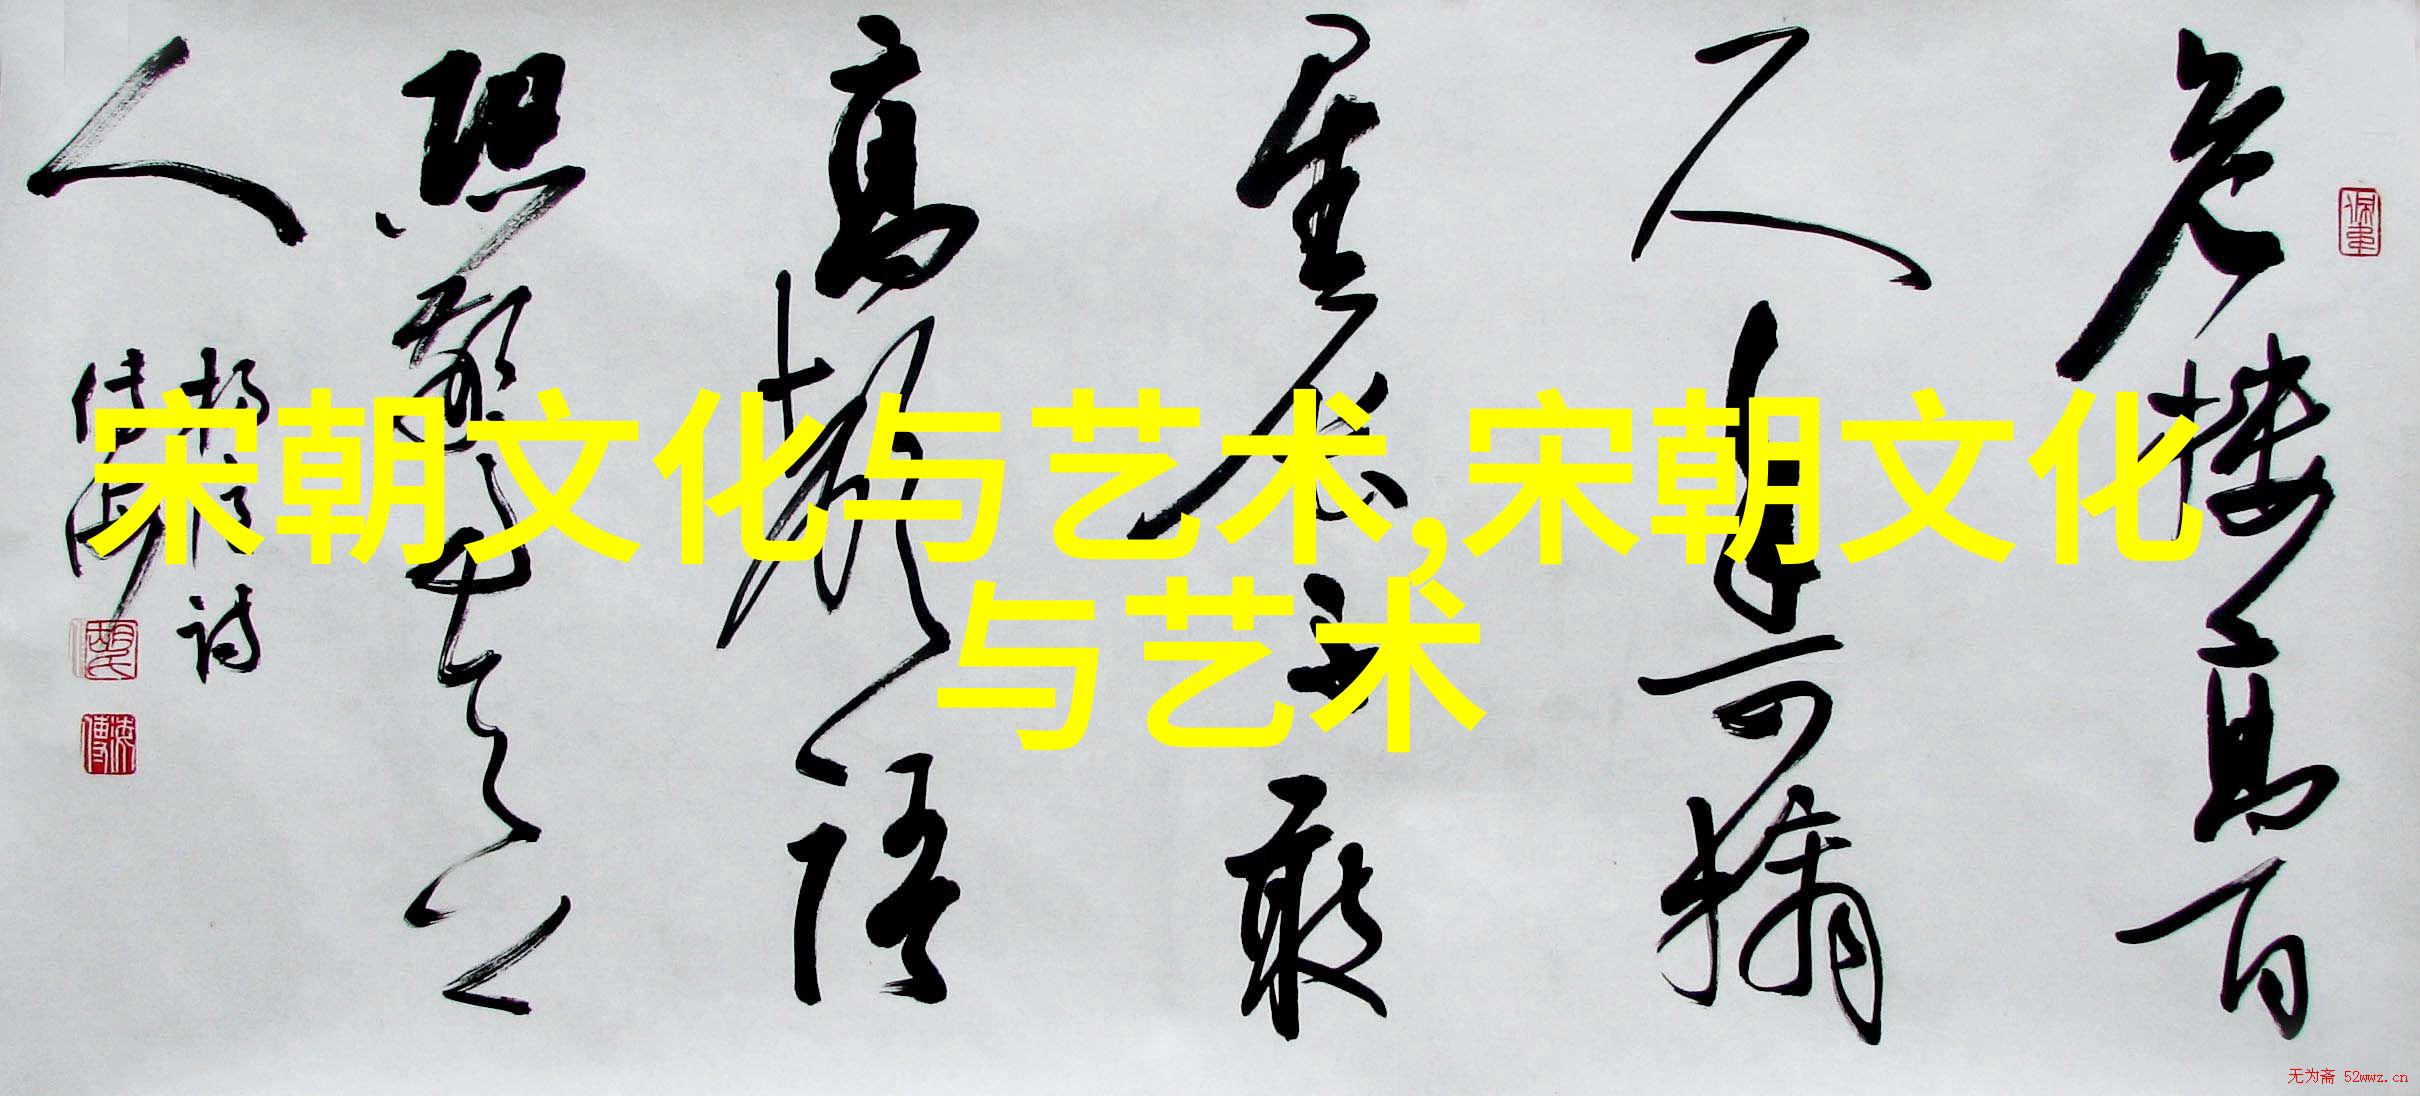 宋朝文化与艺术,宋朝文化
与艺术
危楼高百
尺手可摘
星辰不敢
高声语
恐惊天上
人
无为斋 52wwz.cn